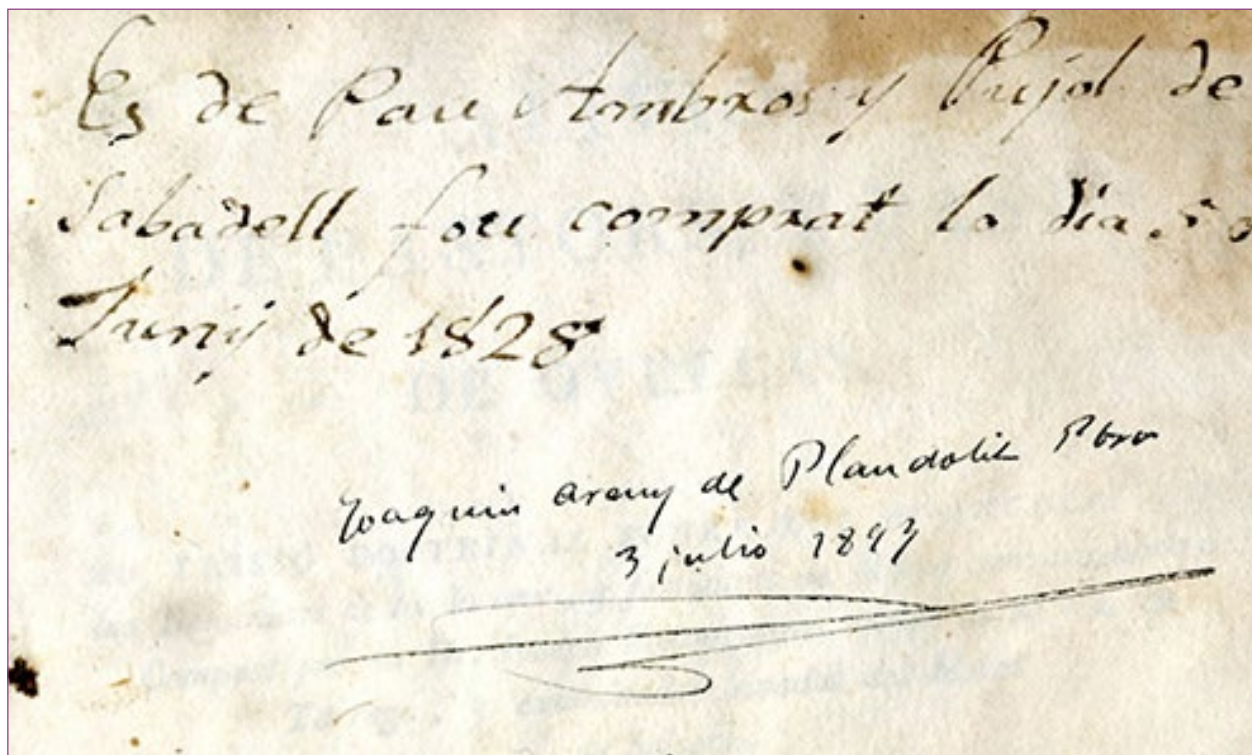 Es de Pau Ambros y Pujol de
Sabadell fou comprat lo dia 5 d
Juny de 1828
Joaquin Areny de Plandolit Pbro
3 julio 1897